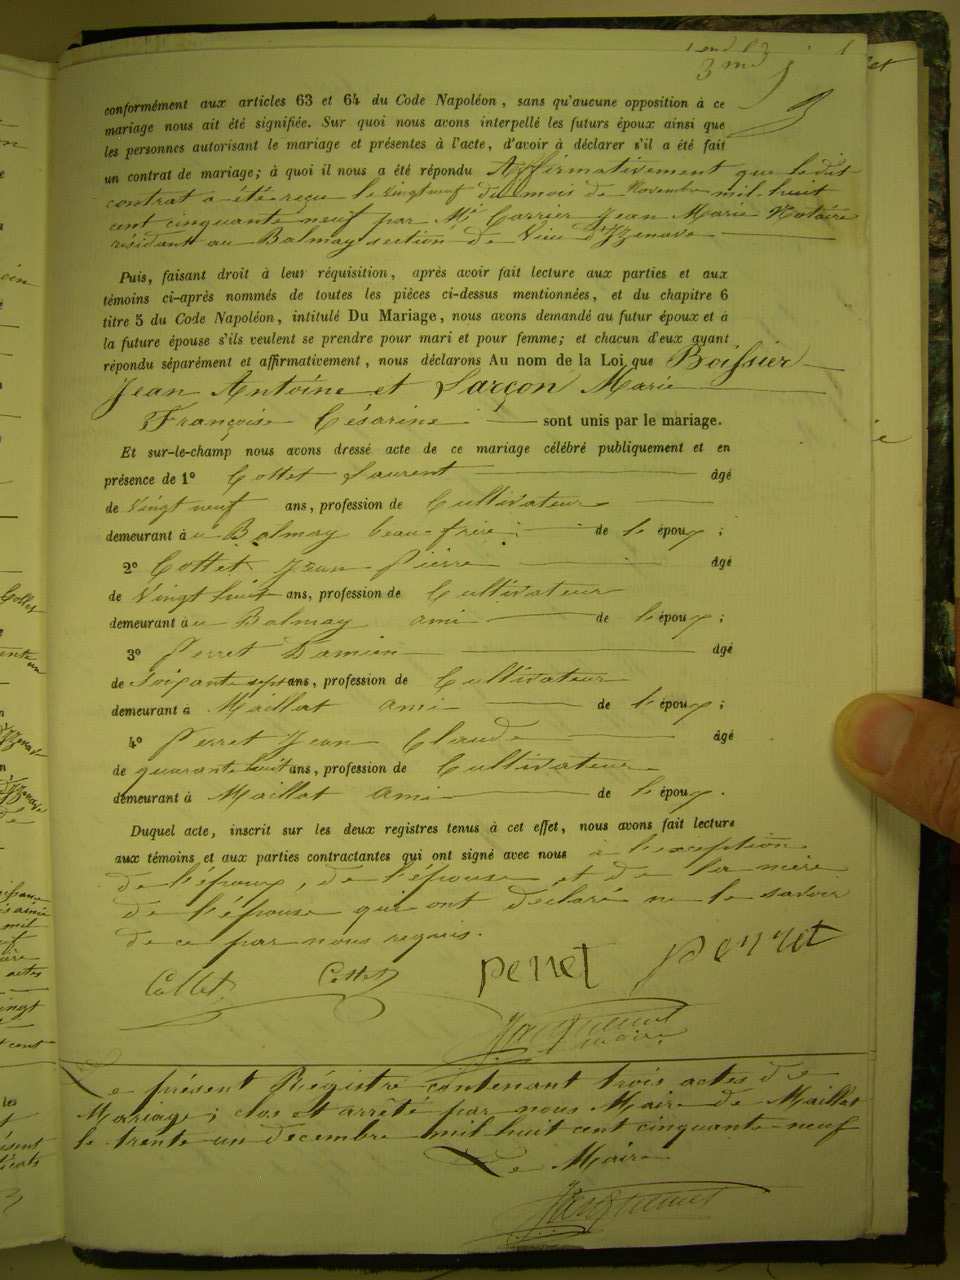 3me
conformément aux articles 63 et 64 du Code Napoléon, sans qu'aucune opposition à ce
mariage nous ait été signifiée. Sur quoi nous avons interpellé les futurs époux ainsi que
les personnes autorisant le mariage et présentes à l'acte, d'avoir à déclarer s'il a été fait
un contrat de mariage; à quoi il nous a été répondu Affirmativement que ledit
contrat a été reçu le vingt neuf du mois de Novembre mil huit
cent cinquante neuf par Me Carrier Jean Marie Notaire
résidant au Balmay section de Vieu d'Izenave
Puis, faisant droit à leur réquisition, après avoir fait lecture aux parties et aux
témoins ci-après nommés de toutes les pièces ci-dessus mentionnées, et du chapitre 6
titre 5 du Code Napoléon, intitulé Du Mariage, nous avons demandé au futur époux et à
la future épouse s'ils veulent se prendre pour mari et pour femme; et chacun d'eux ayant
répondu séparément et affirmativement, nous déclarons Au nom de la Loi que Boissier
Jean Antoine et Sarçon Marie
Françoise Césarine sont unis par le mariage.
Et sur-le-champ nous avons dressé acte de ce mariage célébré publiquement et en
présence de 1° Cottet Laurent âgé
de vingt neuf ans, profession de Cultivateur
demeurant à u Balmay beau-frère de l'époux;
2° Cottet Jean Pierre âgé
de vingt huit ans, profession de Cultivateur
demeurant à u Balmay ami de l'époux;
3° Perret Damien âgé
de soixante sept ans, profession de Cultivateur
demeurant à Maillat ami de l'époux;
4° Perret Jean Claude âgé
de quarante huit ans, profession de Cultivateur
demeurant à Maillat ami de l'époux.
Duquel acte, inscrit sur les deux registres tenus à cet effet, nous avons fait lecture
aux témoins et aux parties contractantes qui ont signé avec nous à l'exception
de l'époux, de l'épouse et de la mère
de l'épouse qui ont déclaré ne le savoir
de ce par nous requis.
Collet Cottet perret perret
Jacquemet
maire
Le présent Régistre contenant trois actes de
Mariage; clos et arrêté par nous Maire de Maillat
le trente un decembre mil huit cent cinquante neuf
Le Maire
Jacquemet